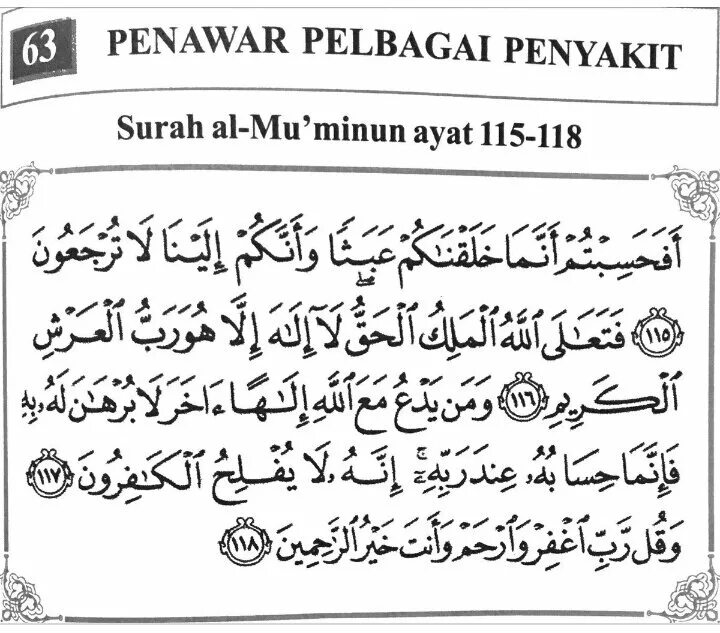 63
PENAWAR PELBAGAI PENYAKIT
Surah al-Mu'minun ayat 115-118
أَفَحَسِبْتُمْ أَنَّمَا خَلَقْنَٰكُمْ عَبَثًا وَأَنَّكُمْ إِلَيْنَا لَا تُرْجَعُونَ
١١٥ فَتَعَٰلَى ٱللَّهُ ٱلْمَلِكُ ٱلْحَقُّ لَآ إِلَٰهَ إِلَّا هُوَ رَبُّ ٱلْعَرْشِ
ٱلْكَرِيمِ ١١٦ وَمَن يَدْعُ مَعَ ٱللَّهِ إِلَٰهًا ءَاخَرَ لَا بُرْهَٰنَ لَهُۥ بِهِۦ
فَإِنَّمَا حِسَابُهُۥ عِندَ رَبِّهِۦٓ ۚ إِنَّهُۥ لَا يُفْلِحُ ٱلْكَٰفِرُونَ ١١٧
وَقُل رَّبِّ ٱغْفِرْ وَٱرْحَمْ وَأَنتَ خَيْرُ ٱلرَّٰحِمِينَ ١١٨